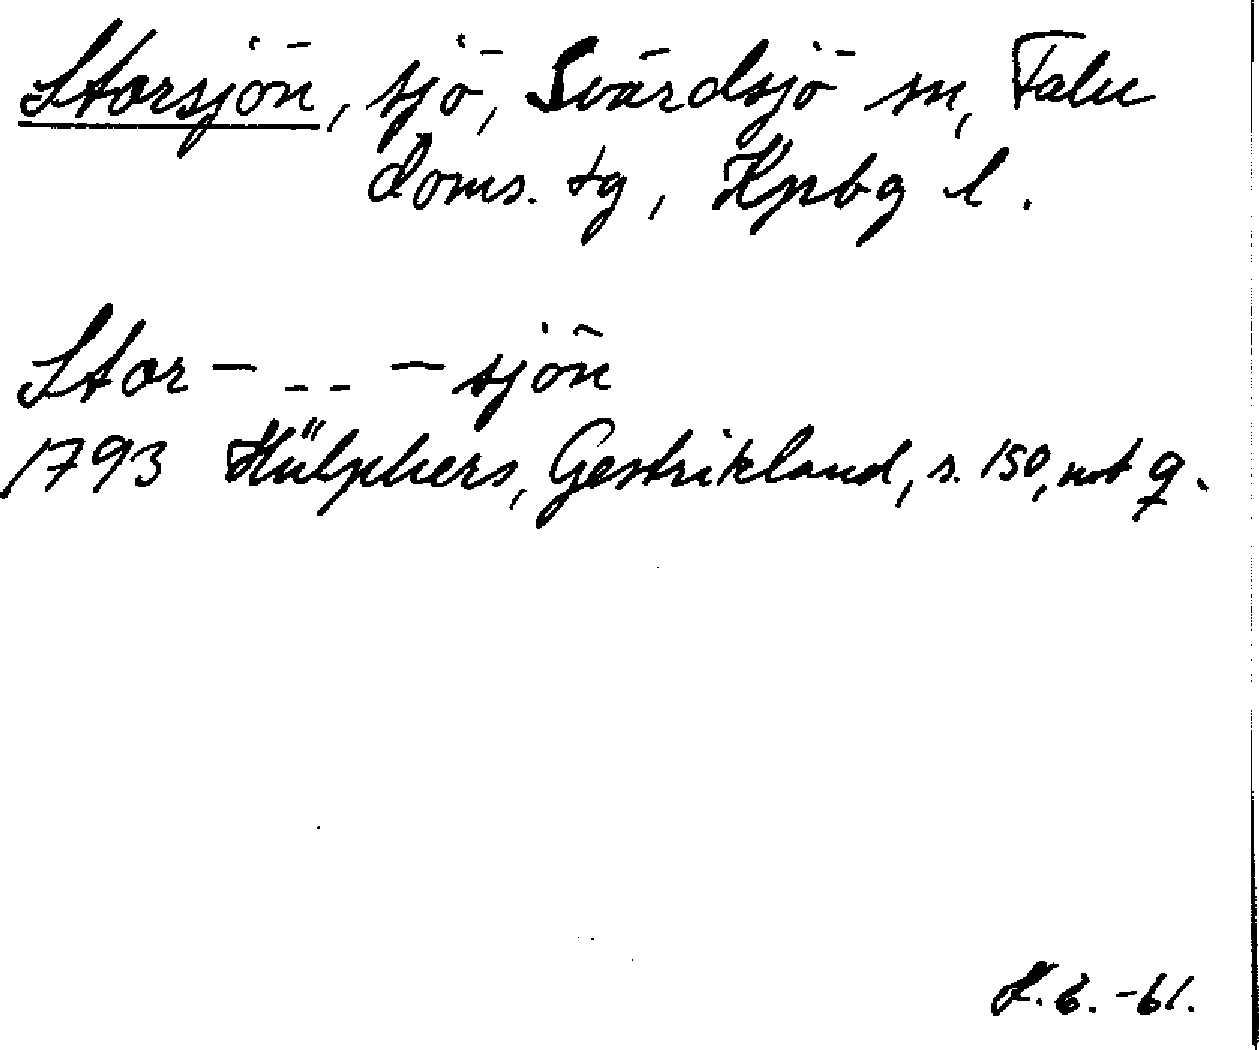 Storsjön, sjö, Svärdsjö sn, Falu
doms. tg, Kpbg l.
Stor - - - - sjön
1793 Hülphers, Gestrikland, s. 150, not q.